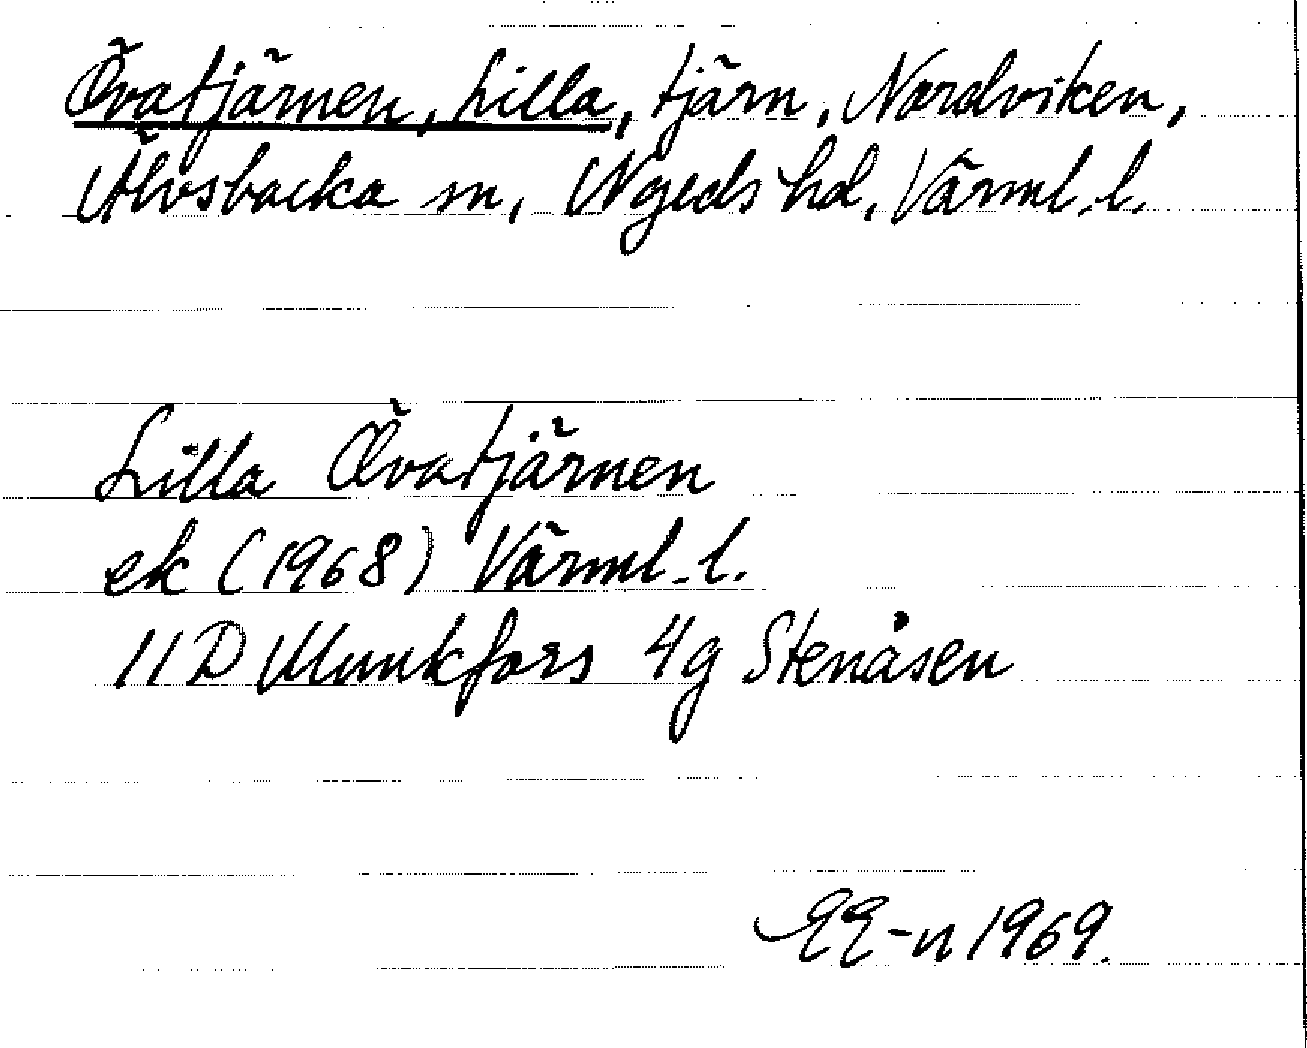 Övatjärnen, Lilla, tjärn, Nordviken,
Älvsbacka sn, Nyeds hd, Värml. l.
Lilla Övatjärnen
ek (1968) Värml. l.
11D Munkfors 4g Stenåsen
EE-n 1969.